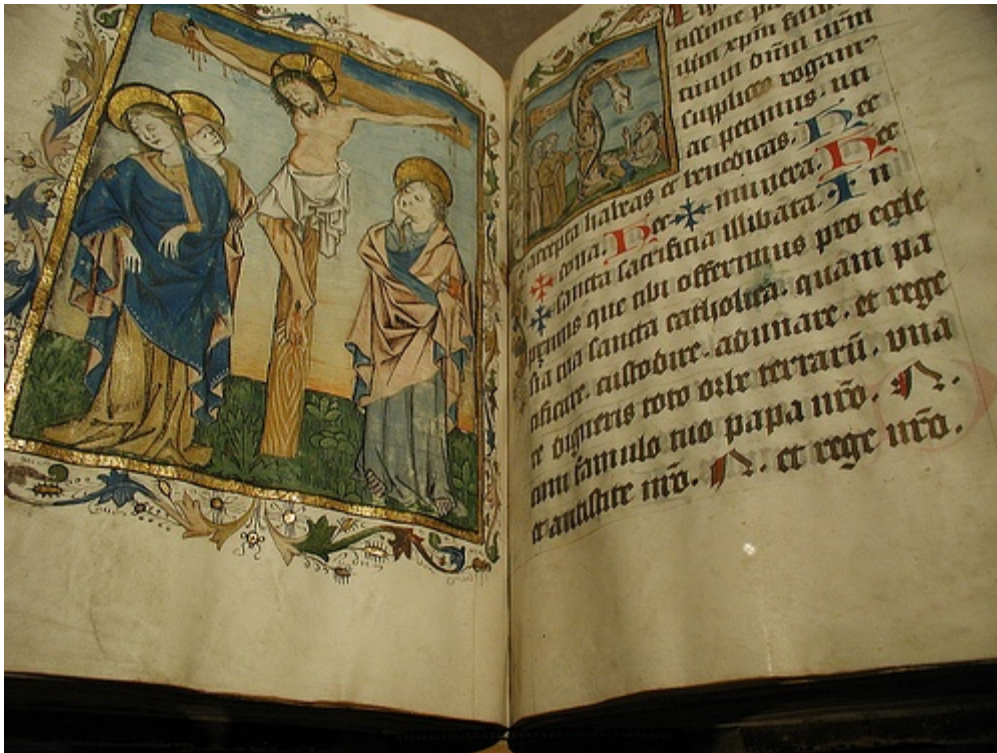 tissime pa
filium
tuum dñm nrm
supplices rogam
ac petimus. uti
accepta habeas et benedicas. Hec
✠ dona. Hec ✠ munera. Hec
✠ sancta sacrificia illibata. In
primis que tibi offerimus pro eccle
sia tua sancta catholica. quam pa
cificare. custodire. adunare. et rege
re digneris toto orbe terrarū. vna
cum famulo tuo papa nrō. N.
et antistite nrō. N. et rege nrō.